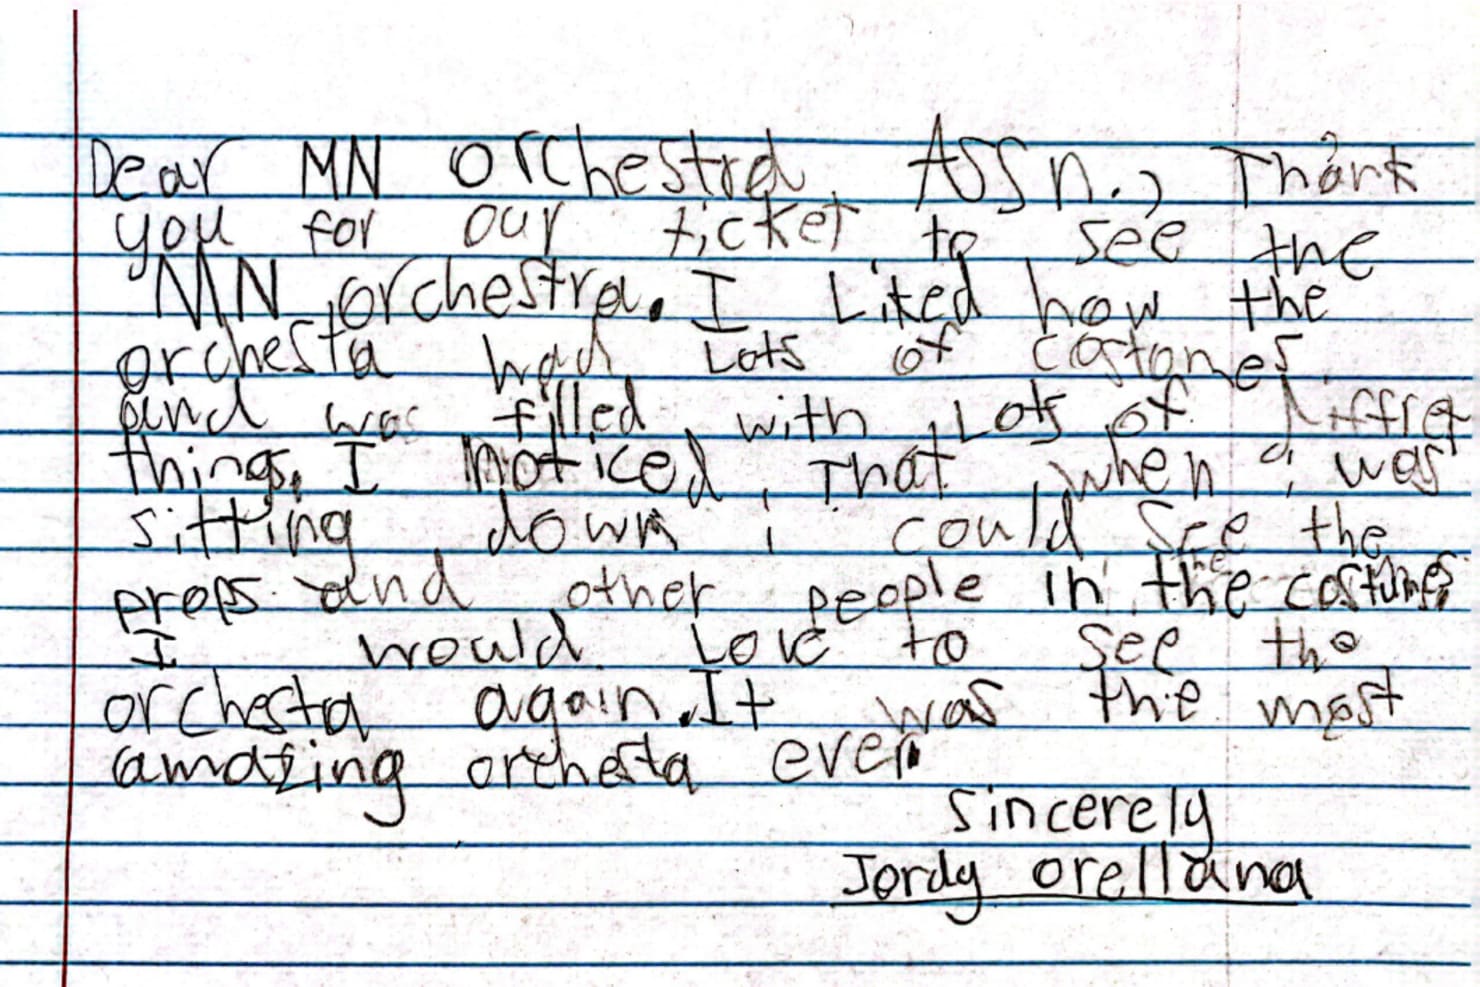 Dear MN orchestra Assn., Thank
you for our ticket to see the
MN orchestra. I Liked how the
orchesta had Lots of costomes
and was filled with Lots of diffret
things. I noticed that when i was
sitting down i could see the
props and other people in the costumes.
I would Love to see the
orchesta again. It was the most
amazing orchesta ever.
sincerely
Jordy orellana